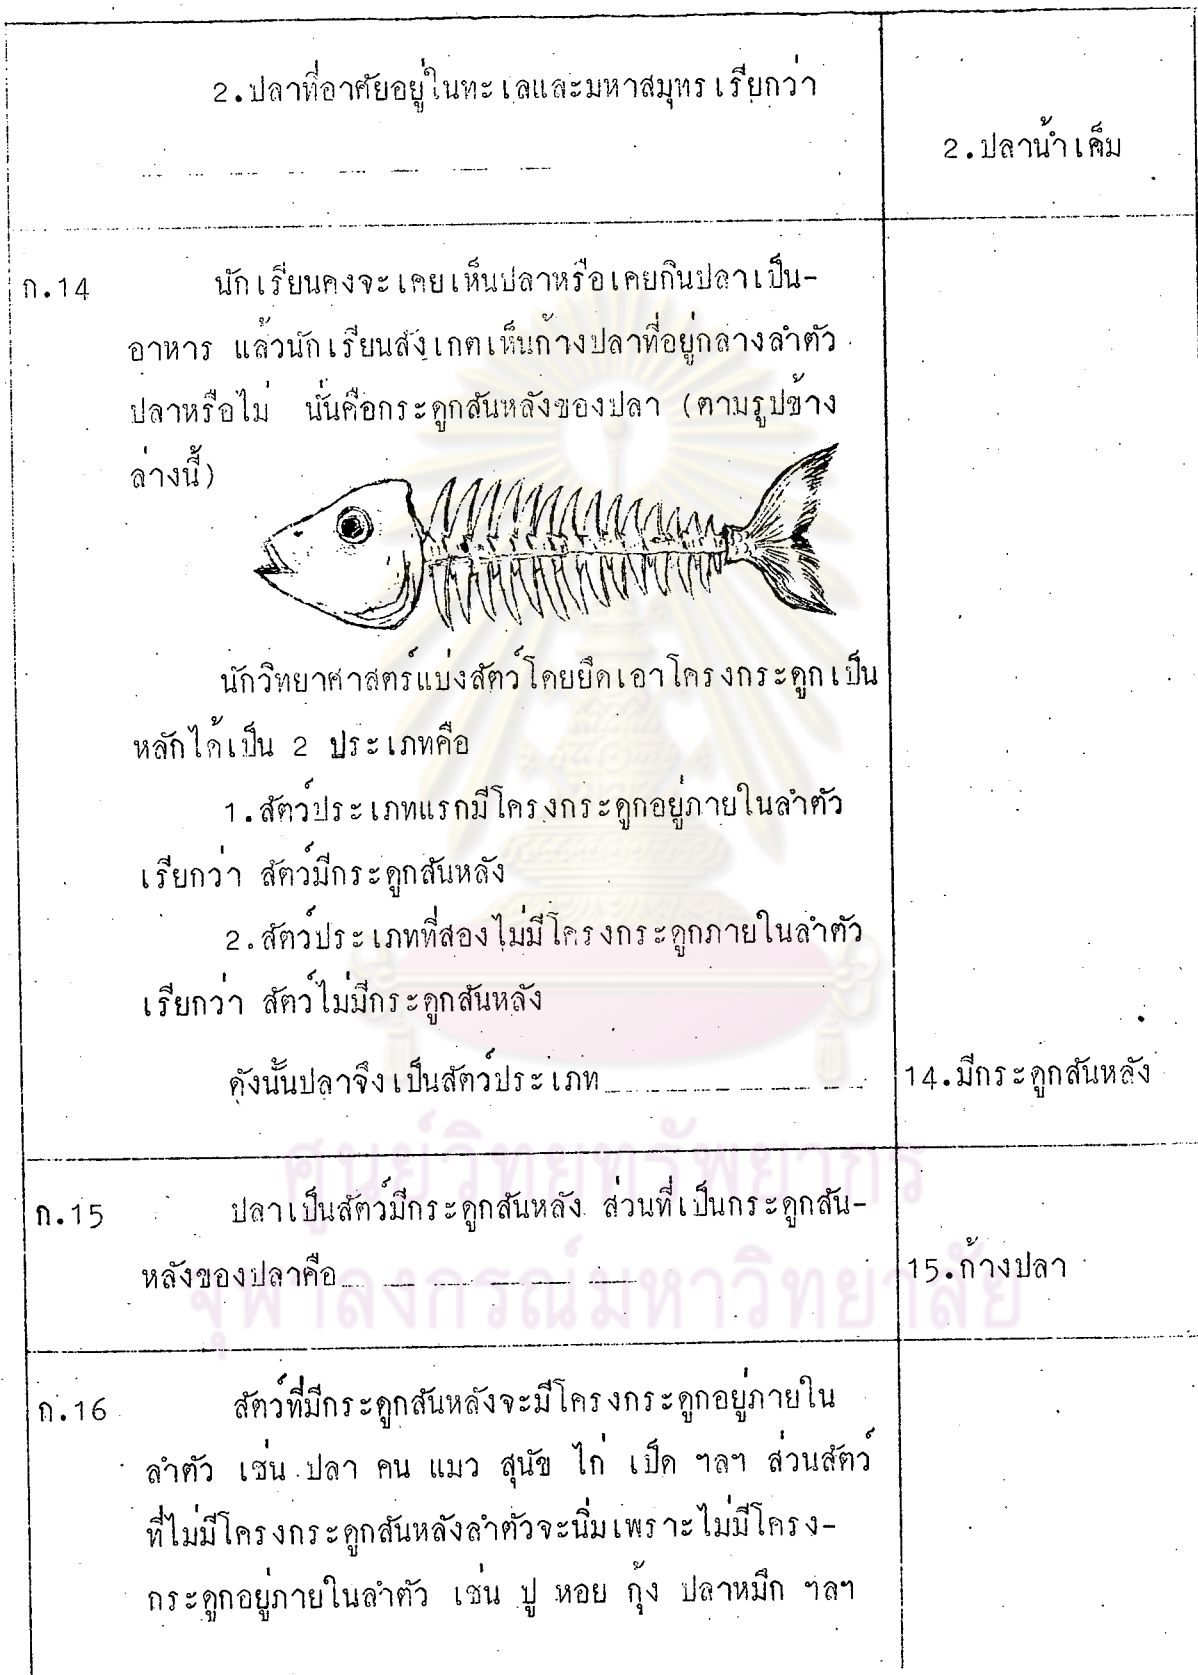 2.ปลาที่อาศัยอยู่ในทะเลและมหาสมุทรเรียกว่า
2.ปลาน้ำเค็ม
ก.14 นักเรียนคงจะเคยเห็นปลาหรือเคยกินปลาเป็น-
อาหาร แล้วนักเรียนสังเกตเห็นก้างปลาที่อยู่กลางลำตัว
ปลาหรือไม่ นั่นคือกระดูกสันหลังของปลา (ตามรูปข้าง
ล่างนี้)
นักวิทยาศาสตร์แบ่งสัตว์โดยยึดเอาโครงกระดูกเป็น
หลักได้เป็น 2 ประเภทคือ
1.สัตว์ประเภทแรกมีโครงกระดูกอยู่ภายในลำตัว
เรียกว่า สัตว์มีกระดูกสันหลัง
2.สัตว์ประเภทที่สองไม่มีโครงกระดูกภายในลำตัว
เรียกว่า สัตว์ไม่มีกระดูกสันหลัง
ดังนั้นปลาจึงเป็นสัตว์ประเภท 14.มีกระดูกสันหลัง
ศูนย์วิทยทรัพยากร
ก.15 ปลาเป็นสัตว์มีกระดูกสันหลัง ส่วนที่เป็นกระดูกสัน-
หลังของปลาคือ 15.ก้างปลา
จุฬาลงกรณ์มหาวิทยาลัย
ก.16 สัตว์ที่มีกระดูกสันหลังจะมีโครงกระดูกอยู่ภายใน
ลำตัว เช่น ปลา คน แมว สุนัข ไก่ เป็ด ฯลฯ ส่วนสัตว์
ที่ไม่มีโครงกระดูกสันหลังลำตัวจะนิ่มเพราะไม่มีโครง-
กระดูกอยู่ภายในลำตัว เช่น ปู หอย กุ้ง ปลาหมึก ฯลฯ